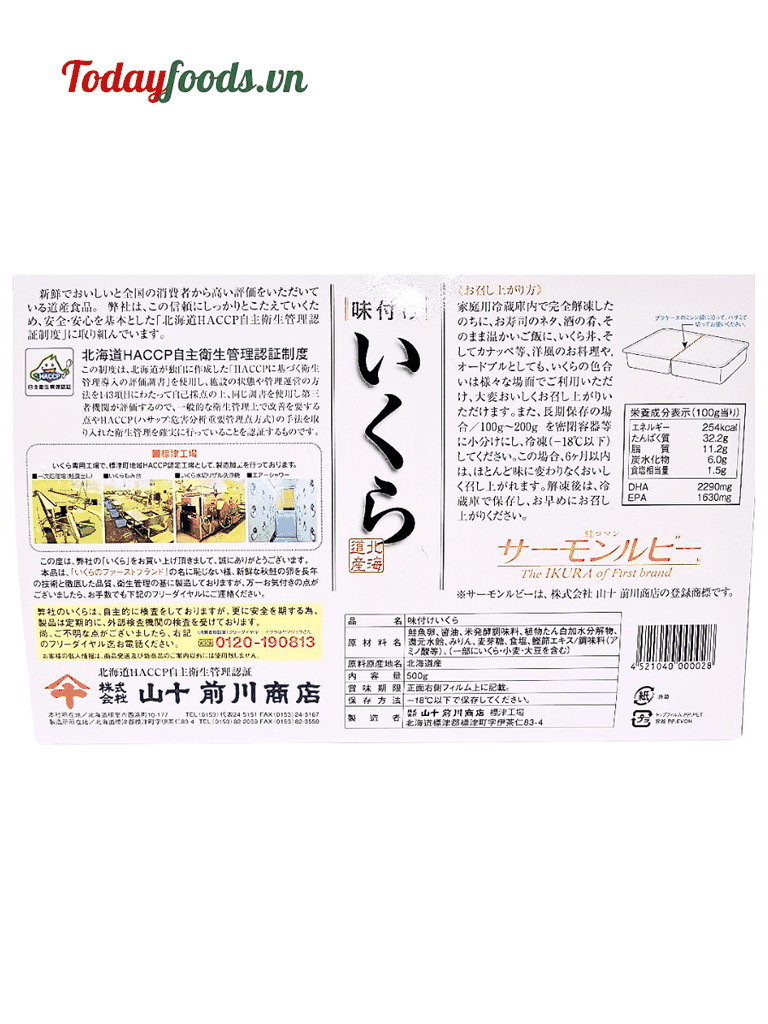 Todayfoods.vn
新鮮でおいしいと全国の消費者から高い評価をいただいて
いる道産食品。 弊社は、この信頼にしっかりとこたえていくた
め、安全・安心を基本とした「北海道HACCP自主衛生管理認
証制度」に取り組んでいます。
HACCP
自主衛生管理認証
北海道HACCP自主衛生管理認証制度
この制度は、北海道が独自に作成した「HACCPに基づく衛生
管理導入の評価調書」を使用し、施設の状態や管理運営の方
法を143項目にわたって自己採点の上、同じ調書を使用し第三
者機関が評価するので、一般的な衛生管理上で改善を要する
点やHACCP(ハサップ:危害分析重要管理点方式)の手法を取
り入れた衛生管理を確実に行っていることを認証するものです。
■標津工場
いくら専用工場で、標津町地域HACCP認定工場として、製造加工を行っております。
■いくらもみ台
■いくら水切りザル洗浄機
■エアーシャワー
この度は、弊社の「いくら」をお買い上げ頂きまして、誠にありがとうございます。
本品は、「いくらのファーストブランド」の名に恥じない様、新鮮な秋鮭の卵を長年
の技術と徹底した品質、衛生管理の基に製造しておりますが、万一お気付きの点が
ございましたら、お手数でも下記のフリーダイヤルにご連絡ください。
弊社のいくらは、自主的に検査をしておりますが、更に安全を期する為、
製品は定期的に、外部検査機関の検査を受けております。
尚、ご不明な点がございましたら、右記
のフリーダイヤル迄お電話ください。
0120-190813
お客様の個人情報は、商品発送及び新商品のご案内以外には使用致しません。
北海道HACCP自主衛生管理認証
株式会社 山十 前川商店
本社所在地/北海道根室市西浜町10-177 TEL(0153)代表24-5151 FAX(0153)24-5167
製造所所在地/北海道標津郡標津町字伊茶仁83-4 TEL(0153)82-2059 FAX(0153)82-3550
味付け
いくら
北海道産
《お召し上がり方》
家庭用冷蔵庫内で完全解凍した
のちに、お寿司のネタ、酒の肴、そ
のまま温かいご飯に、いくら丼、そ
してカナッペ等、洋風のお料理や、
オードブルとしても、いくらの色合
いは様々な場面でご利用いただ
け、大変おいしくお召し上がりい
ただけます。また、長期保存の場
合/100g〜200g を密閉容器等
に小分けにし、冷凍(−18℃以下)
してください。この場合、6ヶ月以内
は、ほとんど味に変わりなくおいし
く召し上がれます。解凍後は、冷
蔵庫で保存し、お早めにお召し
上がりください。
プラケースのミシン線に沿って、ハサミで
切ってお使いください。
栄養成分表示(100g当り)
エネルギー 254kcal
たんぱく質 32.2g
脂質 11.2g
炭水化物 6.0g
食塩相当量 1.5g
DHA 2290mg
EPA 1630mg
鮭ロマン
サーモンルビー
The IKURA of First brand
※サーモンルビーは、株式会社 山十 前川商店の登録商標です。
品名 味付けいくら
原材料名 鮭魚卵、醤油、米発酵調味料、植物たん白加水分解物、
還元水飴、みりん、麦芽糖、食塩、鰹節エキス/調味料(ア
ミノ酸等)、(一部にいくら・小麦・大豆を含む)
原料原産地名 北海道産
内容量 500g
賞味期限 正面右側フィルム上に記載。
保存方法 −18℃以下で保存してください。
製造者 株式会社 山十 前川商店 標津工場
北海道標津郡標津町字伊茶仁83-4
4 521040 000028
紙 外箱
プラ トップフィルム:PP,PET
容器:PP,EVOH